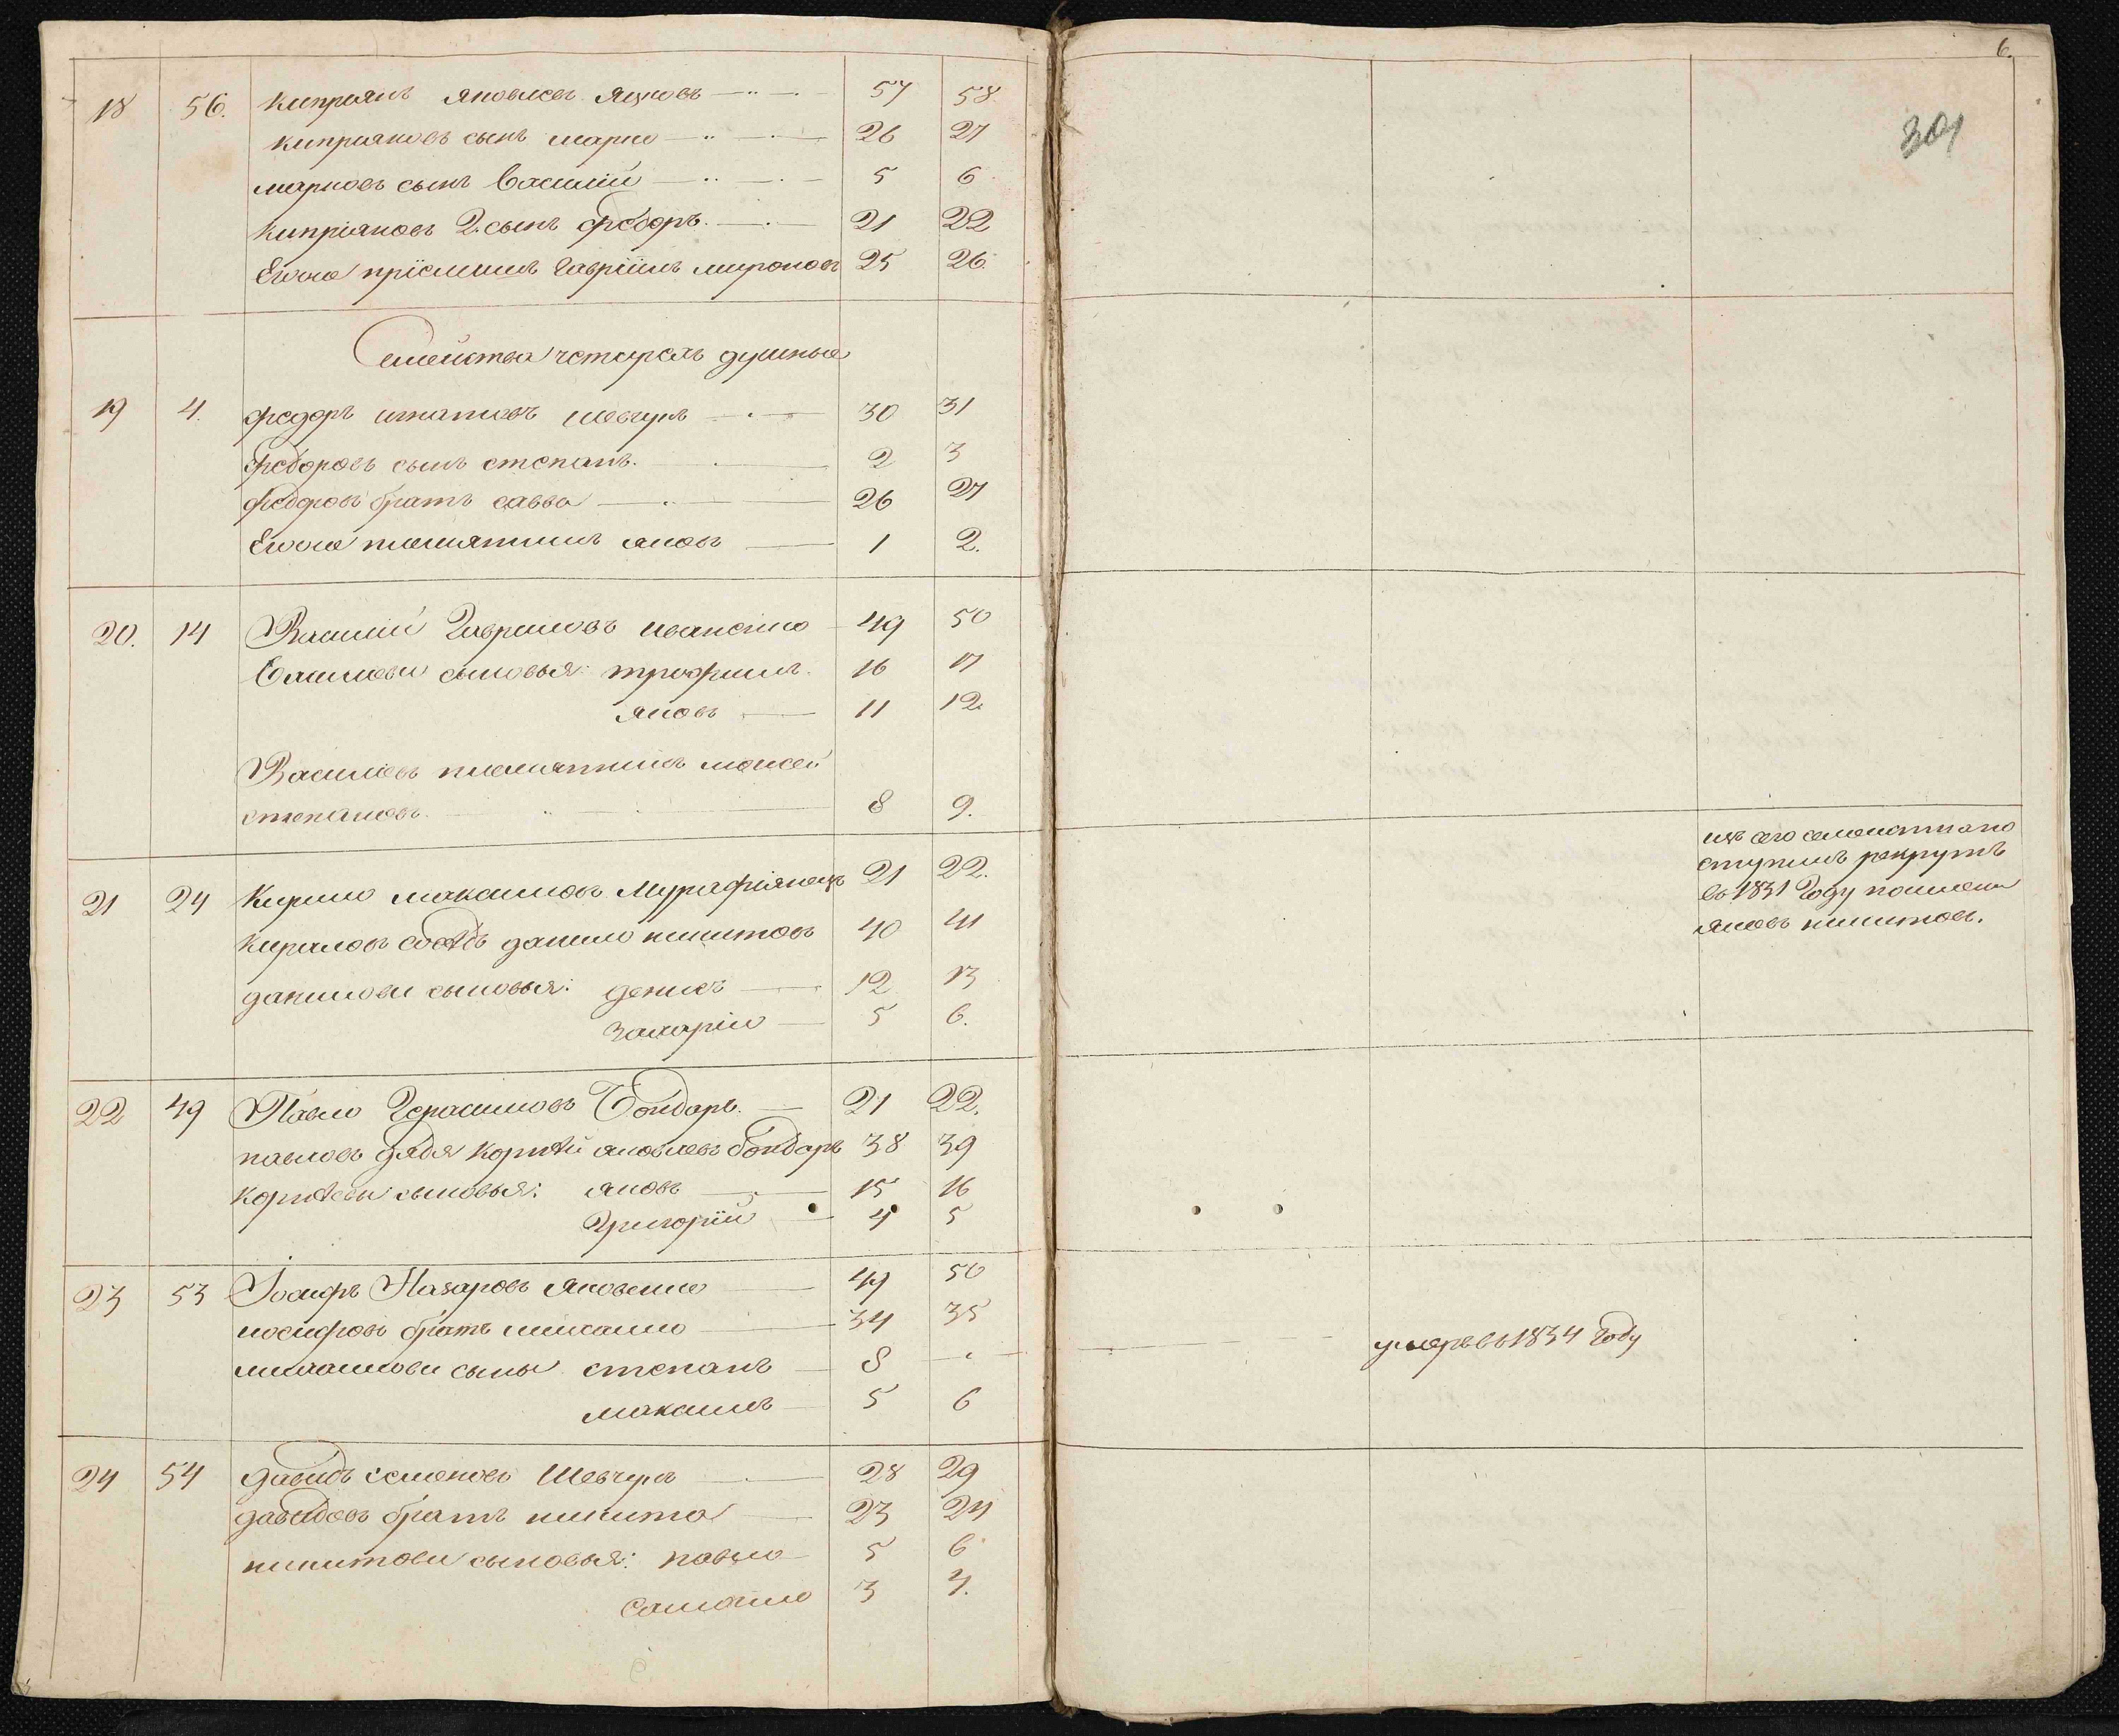 6.
301
18 56. Киприянъ Яковлевъ Яцковъ 57 58
Киприяновъ сынъ Марко 26 27
Марковъ сынъ Василий 5 6
Кипріяновъ 2. сынъ Федоръ. 21 22
Егоже пріемышъ Гавріилъ Мироновъ 25 26
Семейства четырехъ душные
19 4. Федоръ Игнатовъ Шевчукъ 30 31
Федоровъ сынъ Степанъ. 2 3
Федоровъ братъ Савва 26 27
Егоже племянникъ Яковъ 1 2.
20. 14 Василий Гавриловъ Иваненко 49 50
Василеви сыновья: Трофимъ. 16 17
Яковъ 11 12
Василіевъ племянникъ Моисей
Степановъ. 8 9.
21 24 Кирило Максимовъ Мурафіянецъ 21 22.
Кириловъ сосѣдъ Данило Никитовъ 40 41
Данилови сыновья: Денисъ 12 13
Захарій 5 6.
изъ сего семейства по
ступилъ рекрутъ
въ 1831 Году
Яковъ Никитовъ.
22 49 Павло Герасимовъ Бондарь. 21 22.
Павловъ дядя Корнѣй Яковлевъ Бондарь 38 39
Корнѣеви сыновья: Яковъ 15 16
Григорій 4 5
23 53 Іосифъ Назаровъ Яковенко 49 50
Иосифовъ братъ Михайло 34 35
Михайлови сыны Степанъ 8
умеръ въ 1834 Году
Максимъ 5 6
24 54 Давидъ Семеновъ Шевчукъ 28 29
Давидовъ братъ Никита 23 24
Никитови сыновья: Павло 5 6
Самойло 3 4.